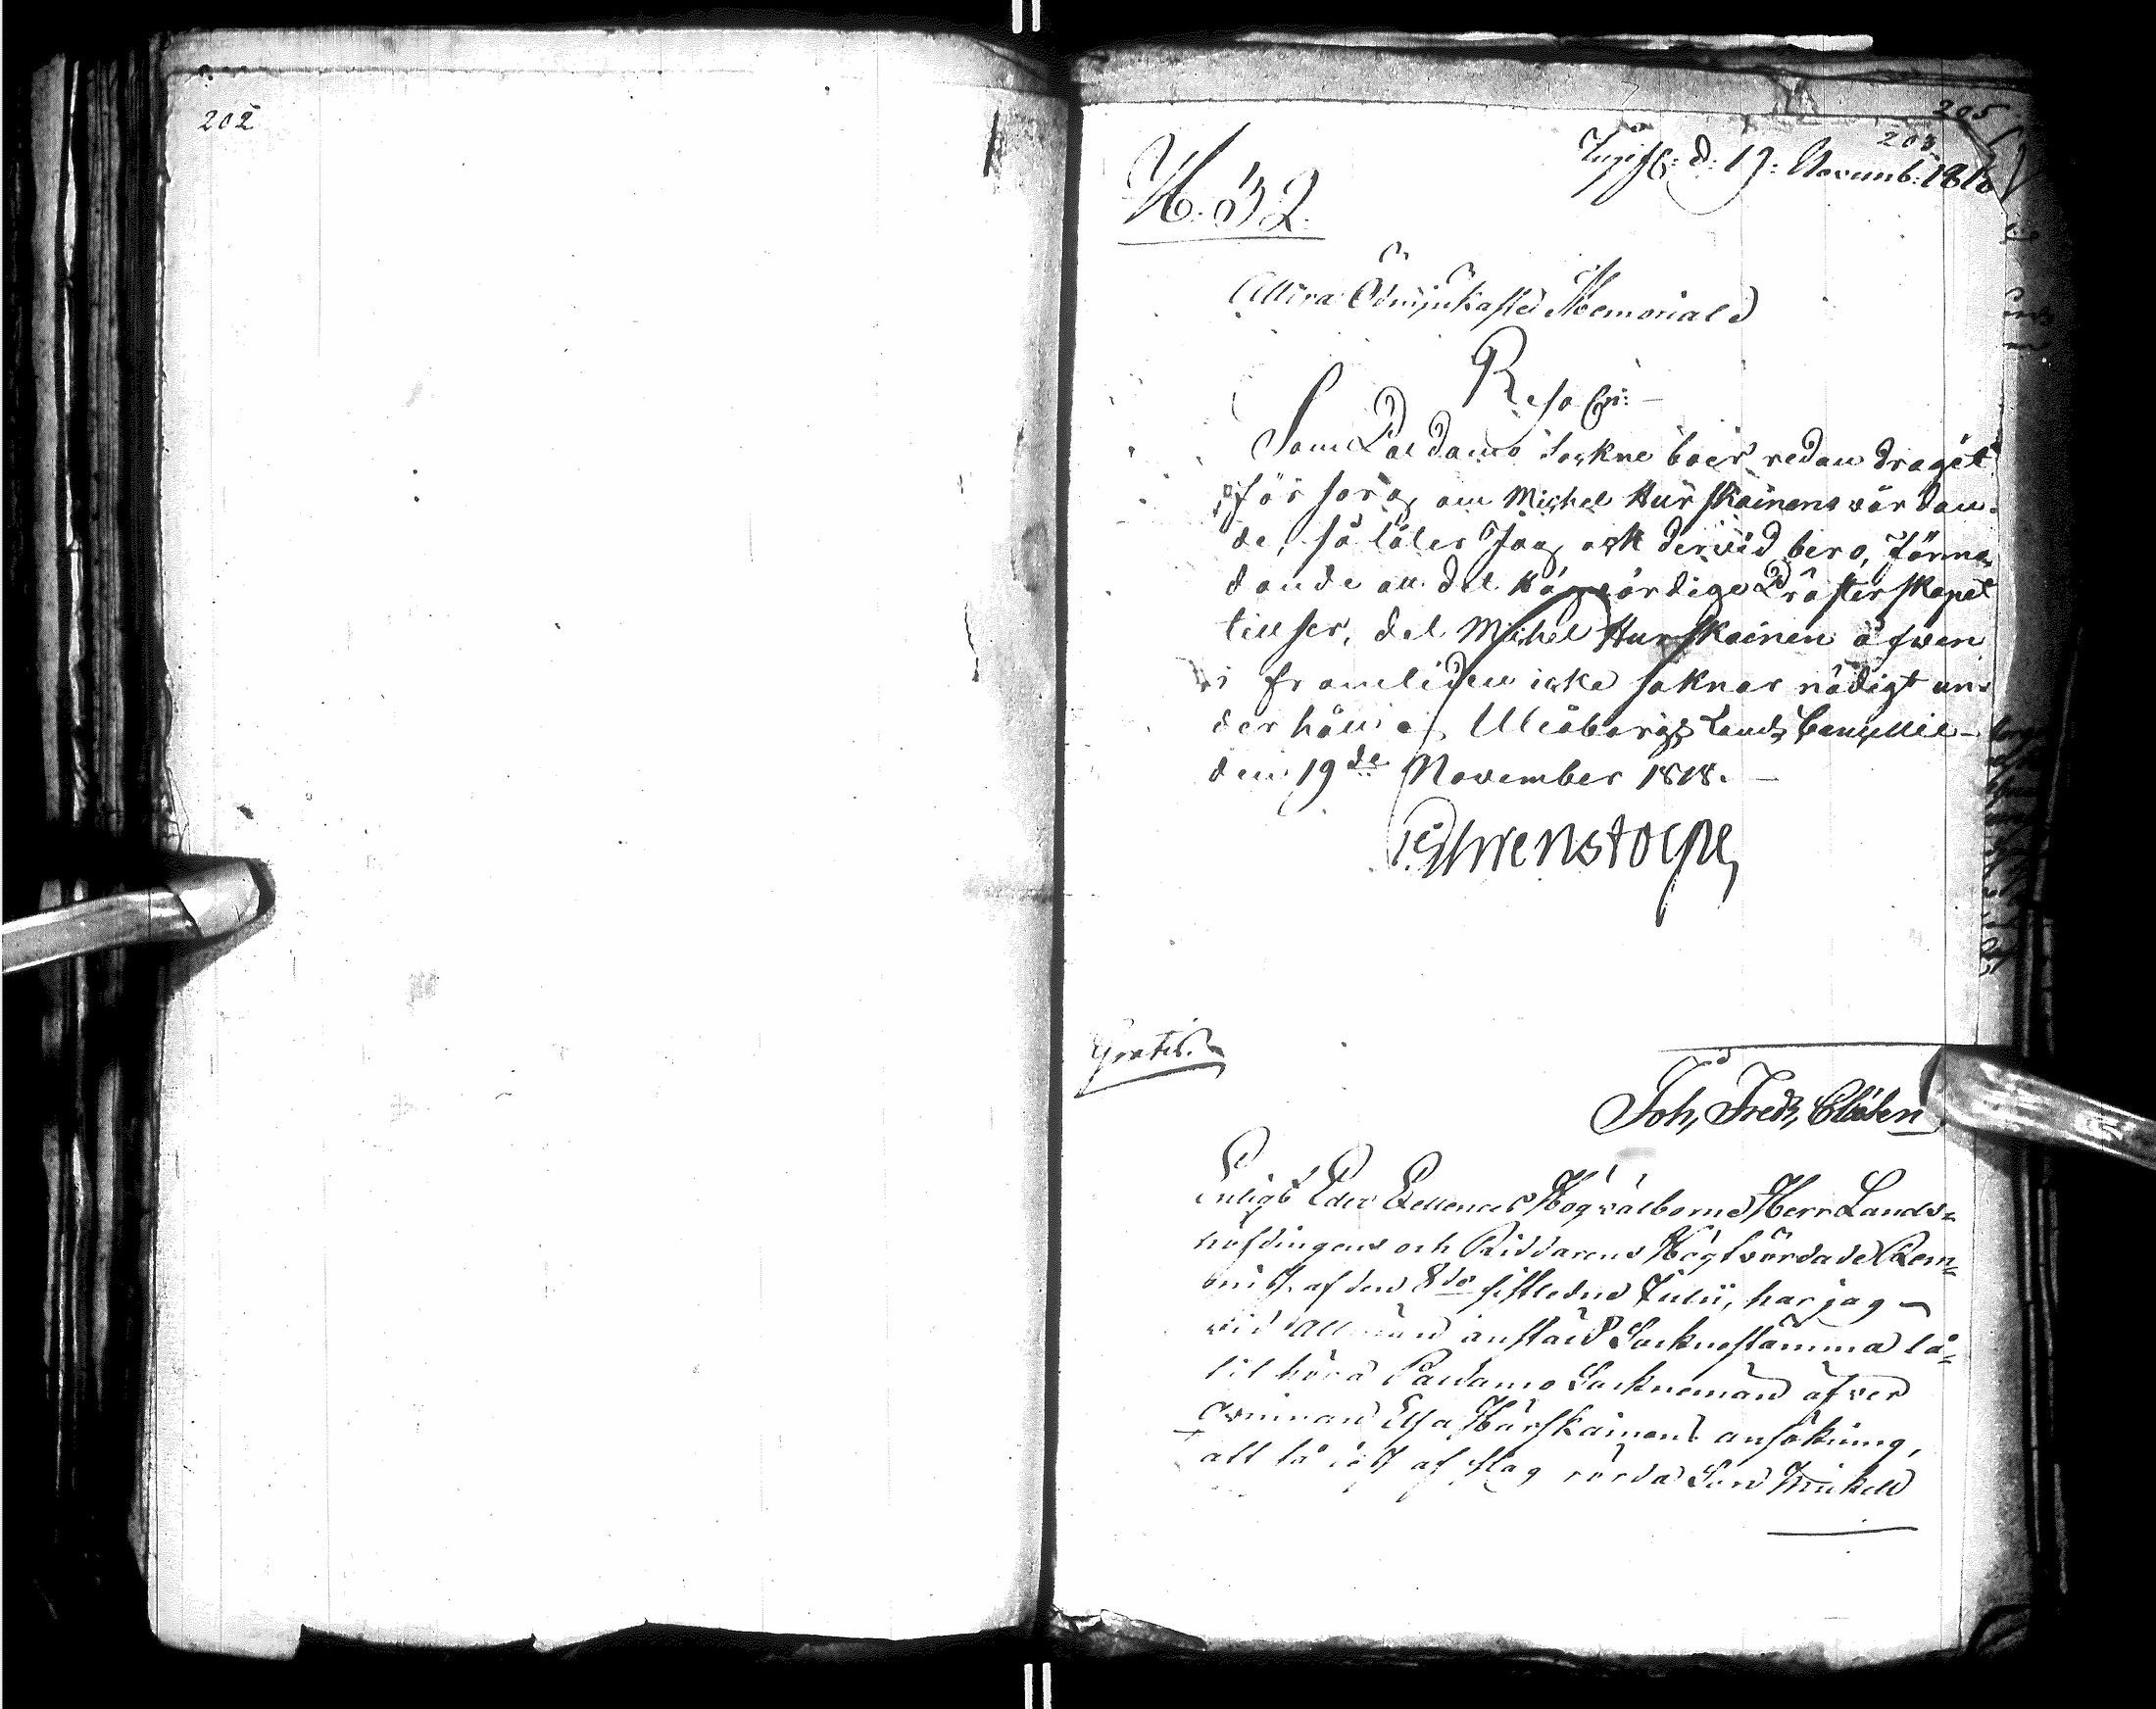 202
205
203
Ingifs: d: 19: Novemb: 1818
N. 32.
Allra Ödmjukaste Memorial
Resol:
Som Paldamo Sockne boer redan dragit
försorg om Michel Hurskainens vårdan-
de, så låter Jag ock dervid bero, förmo-
dande att det Högvördige Prästerskapet
tillser, det Michel Hurskainen äfven
i framtiden icke saknar nödigt un-
derhåll af Uleåborgs Lands Cancellie
den 19de November 1818.
Ehrenstolpe
Gratis.
Joh, Fredr,
Enligt Eders Excellences Högvälborne Herr Lands-
höfdingens och Riddarens Högtvördade Rem-
af den 8de sistledne Julii, har jag
vid Allmän Socknestämma lå-
tit höra Paldamo Socknemän öfver
Qvinnan Elsa Hurskainens ansökning,
att få af slag rörda Son Mickell